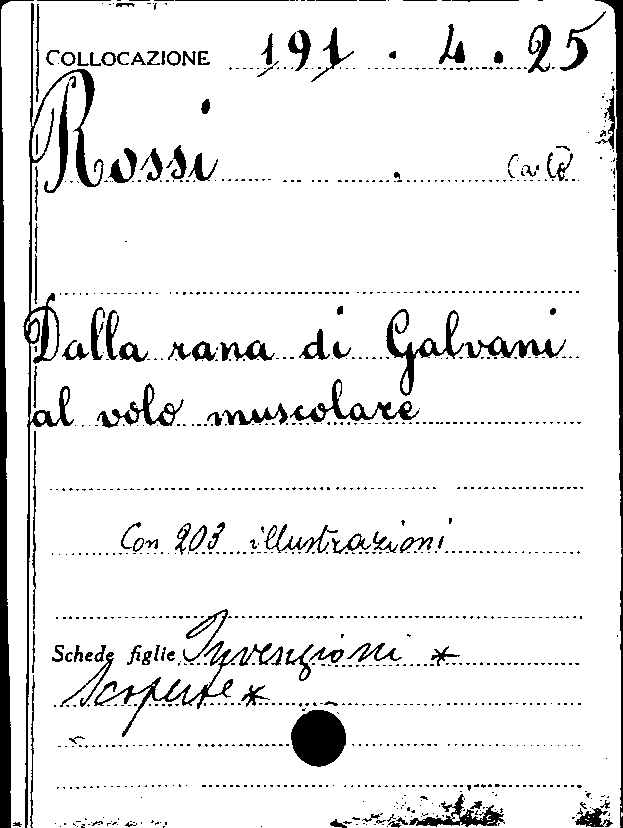 COLLOCAZIONE 191 . 4 . 25
Rossi . Carlo
Dalla rana di Galvani
al volo muscolare
Con 203 illustrazioni
Schede figlie Invenzioni *
Scoperte *